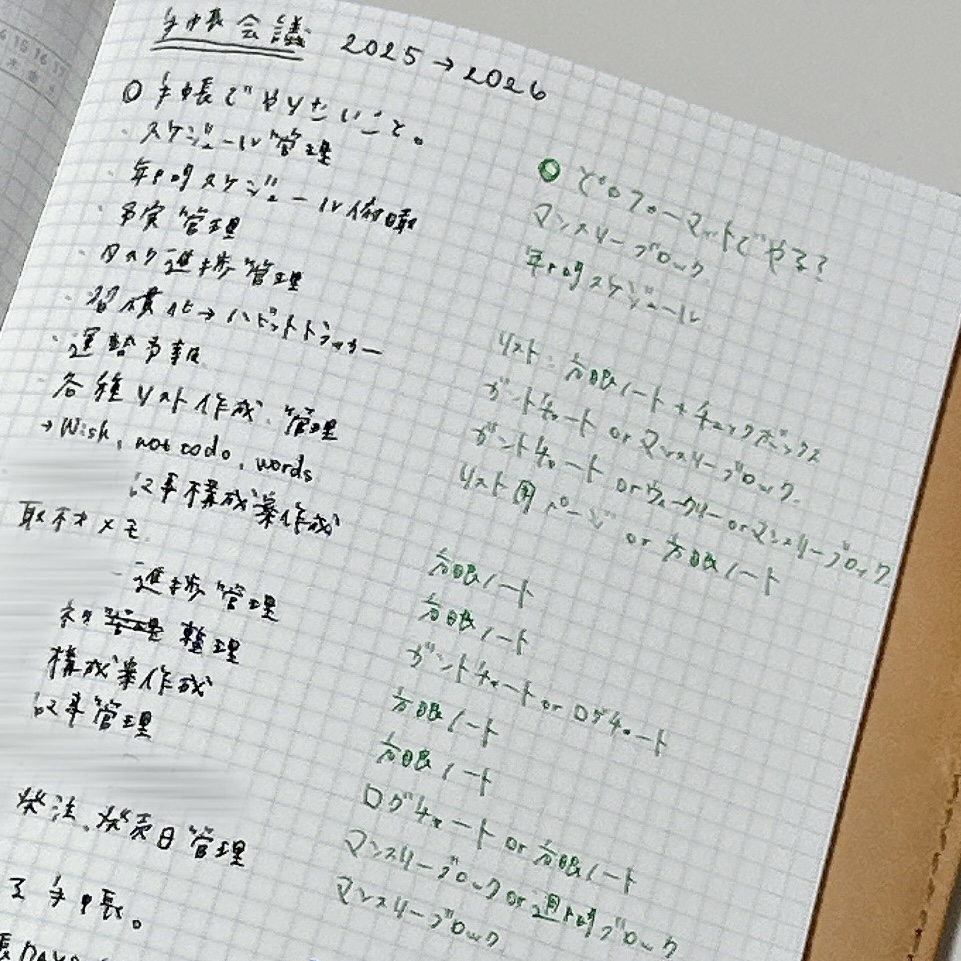 手帳会議 2025→2026
○手帳でやりたいこと。
・スケジュール管理
・年間スケジュール俯瞰
・予実管理
・タスク進捗管理
・習慣化→ハビットトラッカー
・運勢予報
・各種リスト作成、管理
→Wish, not todo, words
記事構成案作成
取材メモ
進捗管理
ネタ 整理
構成案作成
記事管理
発注、発売日管理
る手帳。
帳DAYS
○どのフォーマットでやる?
マンスリーブロック
年間スケジュール
リスト:方眼ノート+チェックボックス
ガントチャート or マンスリーブロック
ガントチャート or ウィークリー or マンスリーブロック
リスト用ページ or 方眼ノート
方眼ノート
方眼ノート
ガントチャート or ログチャート
方眼ノート
方眼ノート
ログチャート or 方眼ノート
マンスリーブロック or 週間ブロック
マンスリーブロック